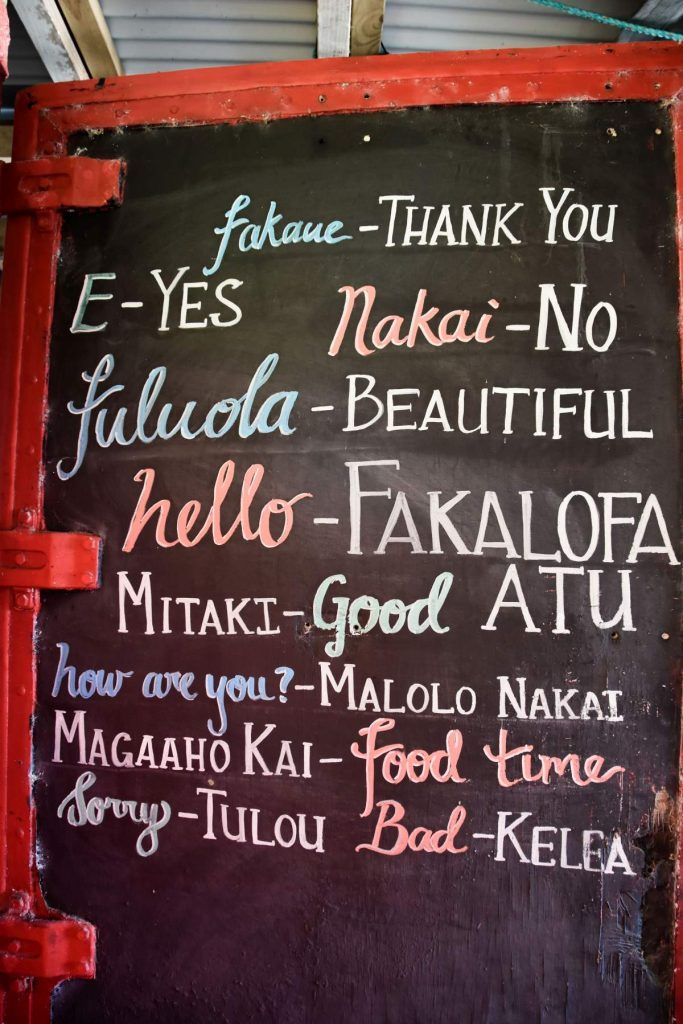 fakaue - THANK YOU
E - YES Nakai - NO
fuluola - BEAUTIFUL
hello - FAKALOFA
ATU
MITAKI - Good
how are you? - MALOLO NAKAI
MAGAAHO KAI - food time
Sorry - TULOU Bad - KELEA